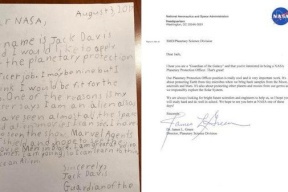 August 3, 2017
Dear NASA,
name is Jack Davis
I would like to apply
the planetary protection
officer job. I may be nine but I
think I would be fit for the
One of the reasons is
sister says I am an alien also
have seen almost all the space
the show Marvel Agents
an Alien.
Sincerely,
Jack Davis
Guardian of the
National Aeronautics and Space Administration
Headquarters
Washington, DC 20546-0001
NASA
NASA Planetary Science Division
Dear Jack,
I hear you are a "Guardian of the Galaxy" and that you're interested in being a NASA
Planetary Protection Officer. That's great!
Our Planetary Protection Officer position is really cool and is very important work. It's
about protecting Earth from tiny microbes when we bring back samples from the Moon,
asteroids and Mars. It's also about protecting other planets and moons from our germs as we
responsibly explore the Solar System.
We are always looking for bright future scientists and engineers to help us, so I hope you
will study hard and do well in school. We hope to see you here at NASA one of these
days!
Sincerely,
Dr. James L. Green
Director, Planetary Science Division